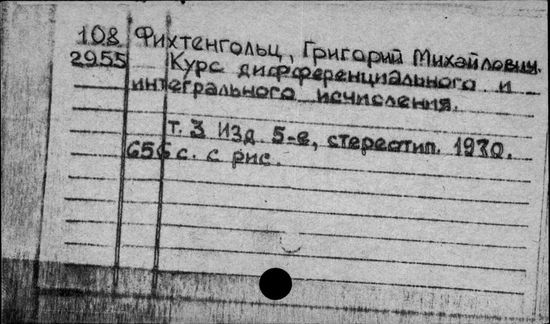 108 Фихтенгольц, Григорий Михайлович.
2955 Курс дифференциального и
интегрального исчисления.
т. 3 Изд. 5-е, стереотип. 1970.
656 с. с рис.